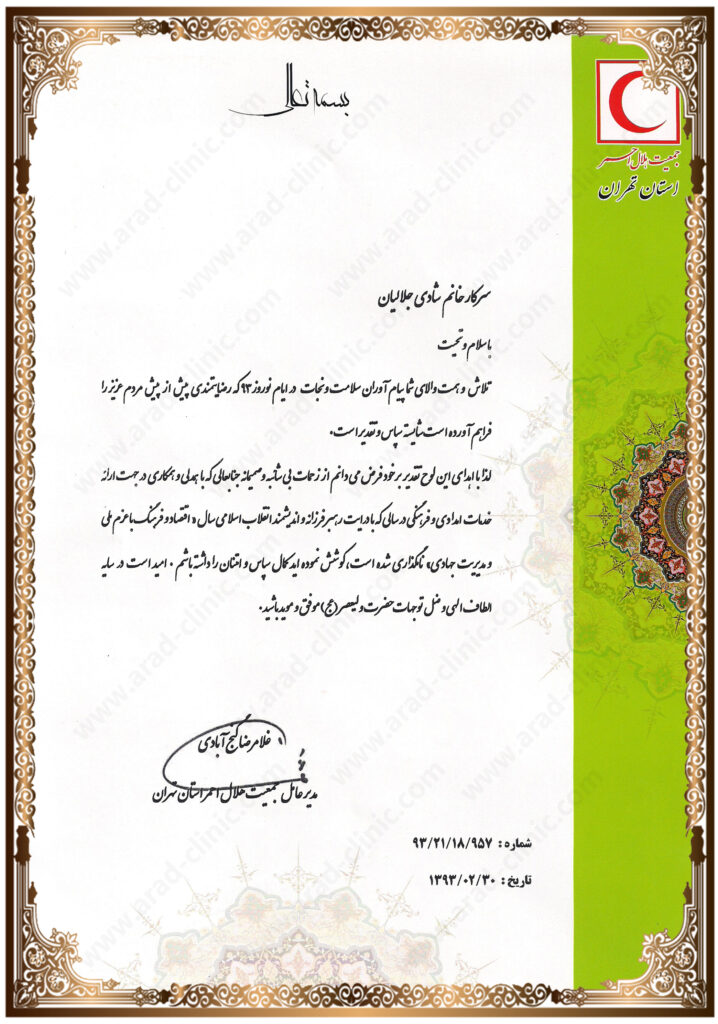 بسمه تعالی
جمعیت هلال احمر
استان تهران
سرکار خانم شادی جلالیان
با سلام و تحیت
تلاش و همت والای شما پیام آوران سلامت و نجات در ایام نوروز ۹۳ که رضایتمندی بیش از پیش مردم عزیز را
فراهم آورده است شایسته سپاس و تقدیر است.
لذا با اهدای این لوح تقدیر بر خود فرض می دانم از زحمات بی شائبه و صمیمانه جنابعالی که با همدلی و همکاری در جهت ارائه
خدمات امدادی و فرهنگی در سالی که با درایت رهبر فرزانه و اندیشمند انقلاب اسلامی سال « اقتصاد و فرهنگ با عزم ملی
و مدیریت جهادی» نامگذاری شده است، کوشش نموده اید کمال سپاس و امتنان را داشته باشم . امید است در سایه
الطاف الهی و ظل توجهات حضرت ولیعصر (عج) موفق و موید باشید.
غلامرضا گنج آبادی
مدیر عامل جمعیت هلال احمر استان تهران
شماره : ۹۳/۲۱/۱۸/۹۵۷
تاریخ : ۱۳۹۳/۰۲/۳۰
www.arad-clinic.com